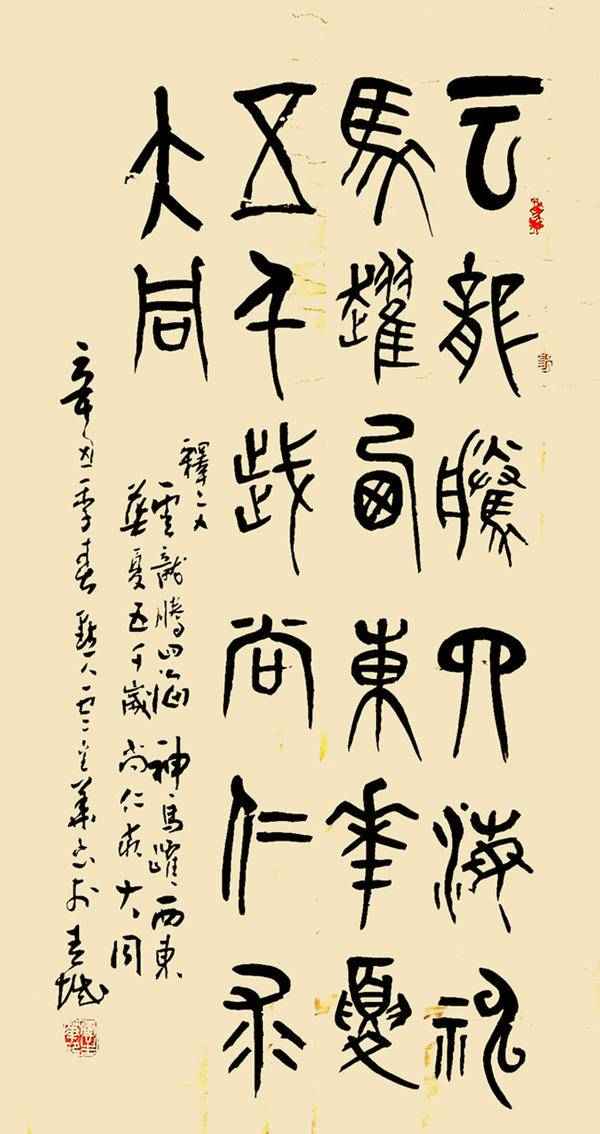 云龍騰四海神
馬躍西東華夏
五千歲尚仁求
大同
釋文
雲龍騰四海神馬躍西東
華夏五千歲尚仁求大同
辛丑季春 華書於青城